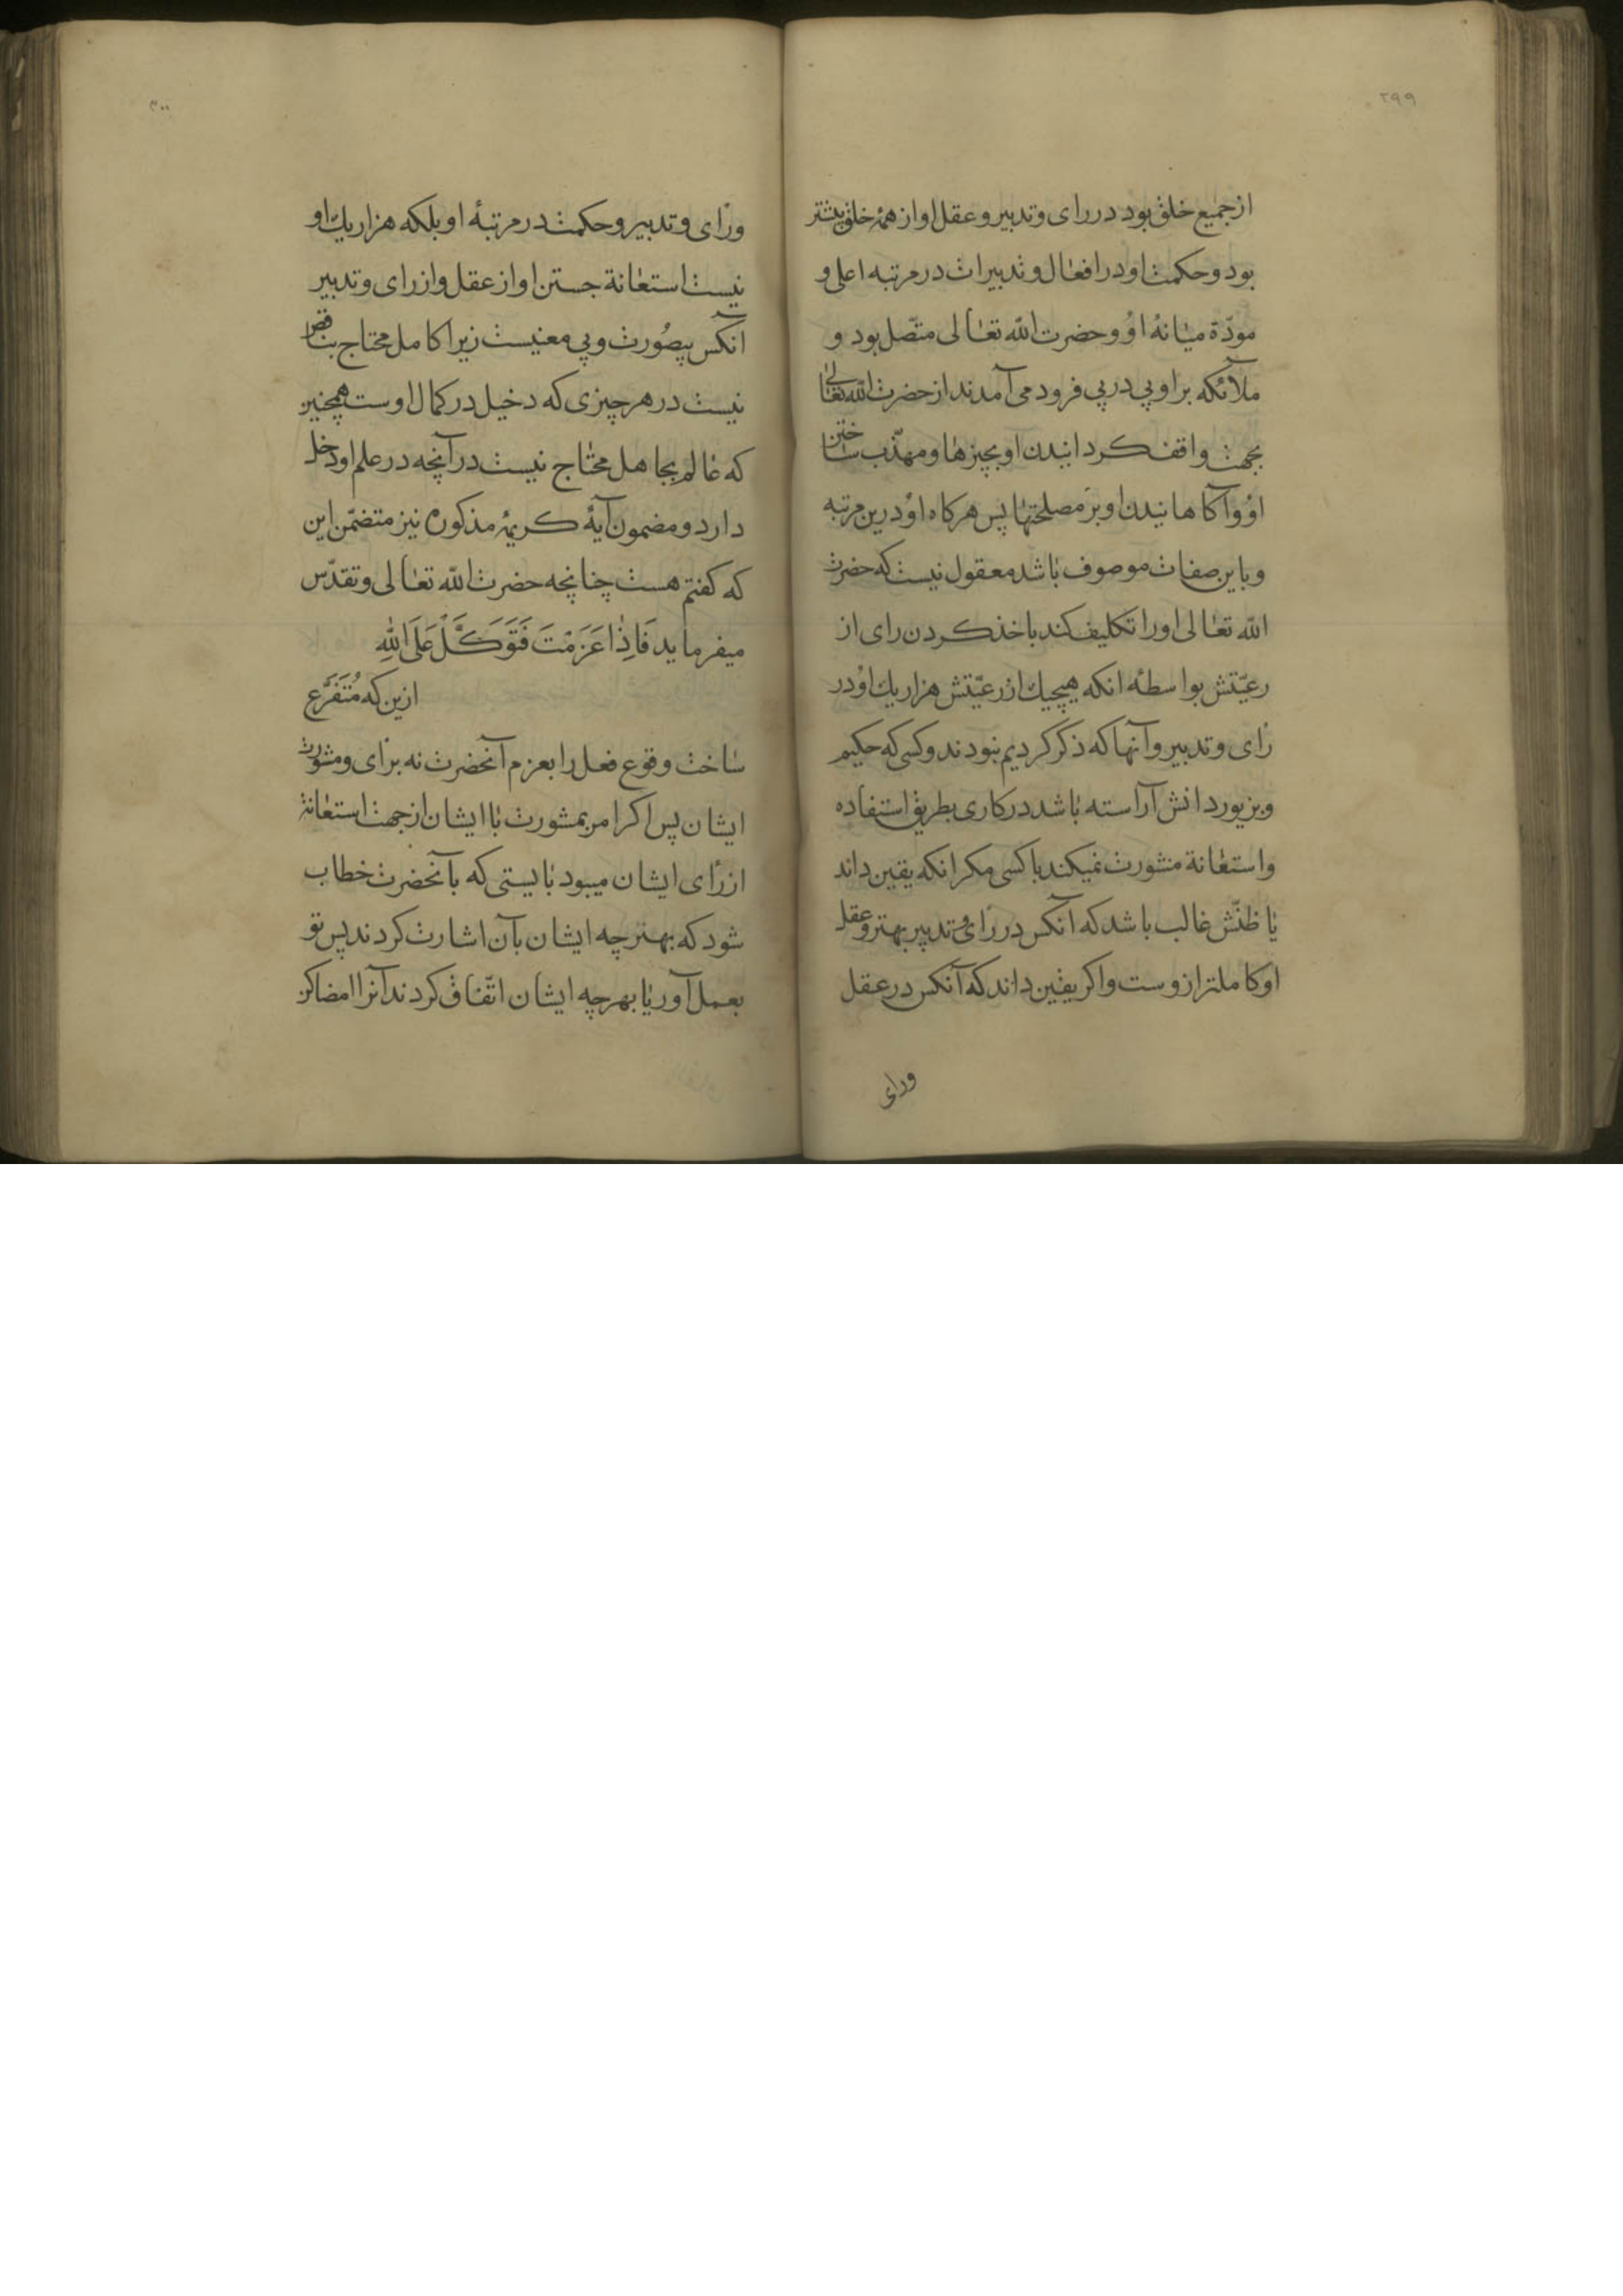 ۲۹۹
از جمیع خلق بود در رای و تدبیر و عقل او از همهٔ خلق بیشتر
بود و حکمت او در افعال و تدبیرات در مرتبه اعلی و
مودّة میانهٔ اوُ و حضرت الله تعالی متّصل بود و
ملائکه بر او پی در پی فرود می آمدند از حضرت الله تعالی
بجهت واقف کردانیدن او بچیزها و مهذّب ساختن
اوُ و آکاهانیدن او بر مصلحتها پس هرکاه اوُ درین مرتبه
و باین صفات موصوف باشد معقول نیست که حضرت
الله تعالی او را تکلیف کند باخذ کردن رای از
رعیّتش بواسطهٔ انکه هیچیك از رعیّتش هزار یك اوُ در
رای و تدبیر و آنها که ذکر کردیم نبودند و کسی که حکیم
و بزیور دانش آراسته باشد در کاری بطریق استفاده
و استعانة مشورت نمیکند با کسی مکر انکه یقین داند
یا ظنّش غالب باشد که آنکس در رای و تدبیر بهتر و عقل
او کاملتر ازوست و اکر یقین داند که آنکس در عقل
ورای
۳۰۰
و رای و تدبیر و حکمت در مرتبهٔ او بلکه هزار یك او
نیست استعانة جستن او از عقل و از رای و تدبیر
آنکس بیصُورت و بی معنیست زیرا کامل محتاج بناقص
نیست در هر چیزی که دخیل در کمال اوست همچنین
که عالم بجاهل محتاج نیست در آنچه در علم او دخل
دارد و مضمون آیهٔ کریمهٔ مذکوره نیز متضمّن این
که کفتم هست چنانچه حضرت الله تعالی و تقدّس
میفرماید فَاِذٰا عَزَمْتَ فَتَوَکَّلْ عَلَی اللّٰهِ
ازین که مُتَفَرَّع
ساخت وقوع فعل را بعزم آنحضرت نه برای و مشورت
ایشان پس اکر امر بمشورت با ایشان از جهت استعانة
از رای ایشان میبود بایستی که بآنحضرت خطاب
شود که بهتر چه ایشان بآن اشارت کردند پس تو
بعمل آور یا بهر چه ایشان اتّفاق کردند آنرا امضا کن